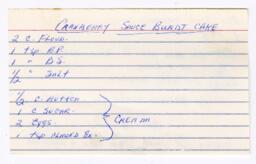 CRANBERRY SAUCE BUNDT CAKE
2 C. FLOUR
1 tsp B.P.
1 " B.S.
1/2 " SALT
1/2 C. BUTTER
1 C. SUGAR
2 Eggs
1 tsp ALMOND EX.
CREAM